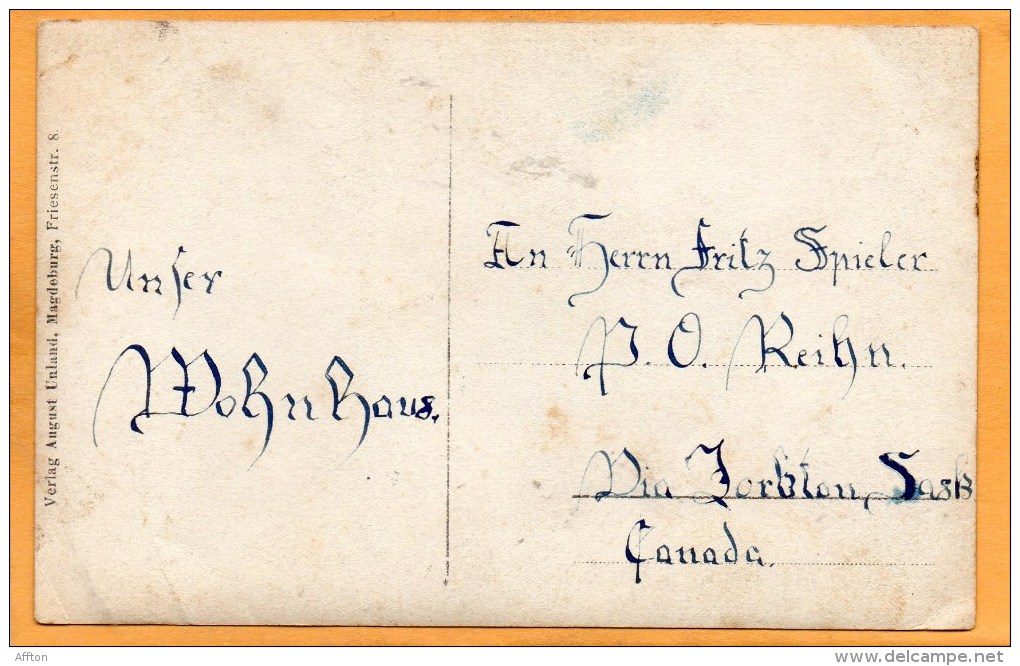 Verlag August Unland, Magdeburg, Friesenstr. 8.
Unser
Wohnhaus.
An Herrn Fritz Spieler
P. O. Reihn.
Via Jorkton, Sask
Canada.
Affton
http://www.delcampe.net